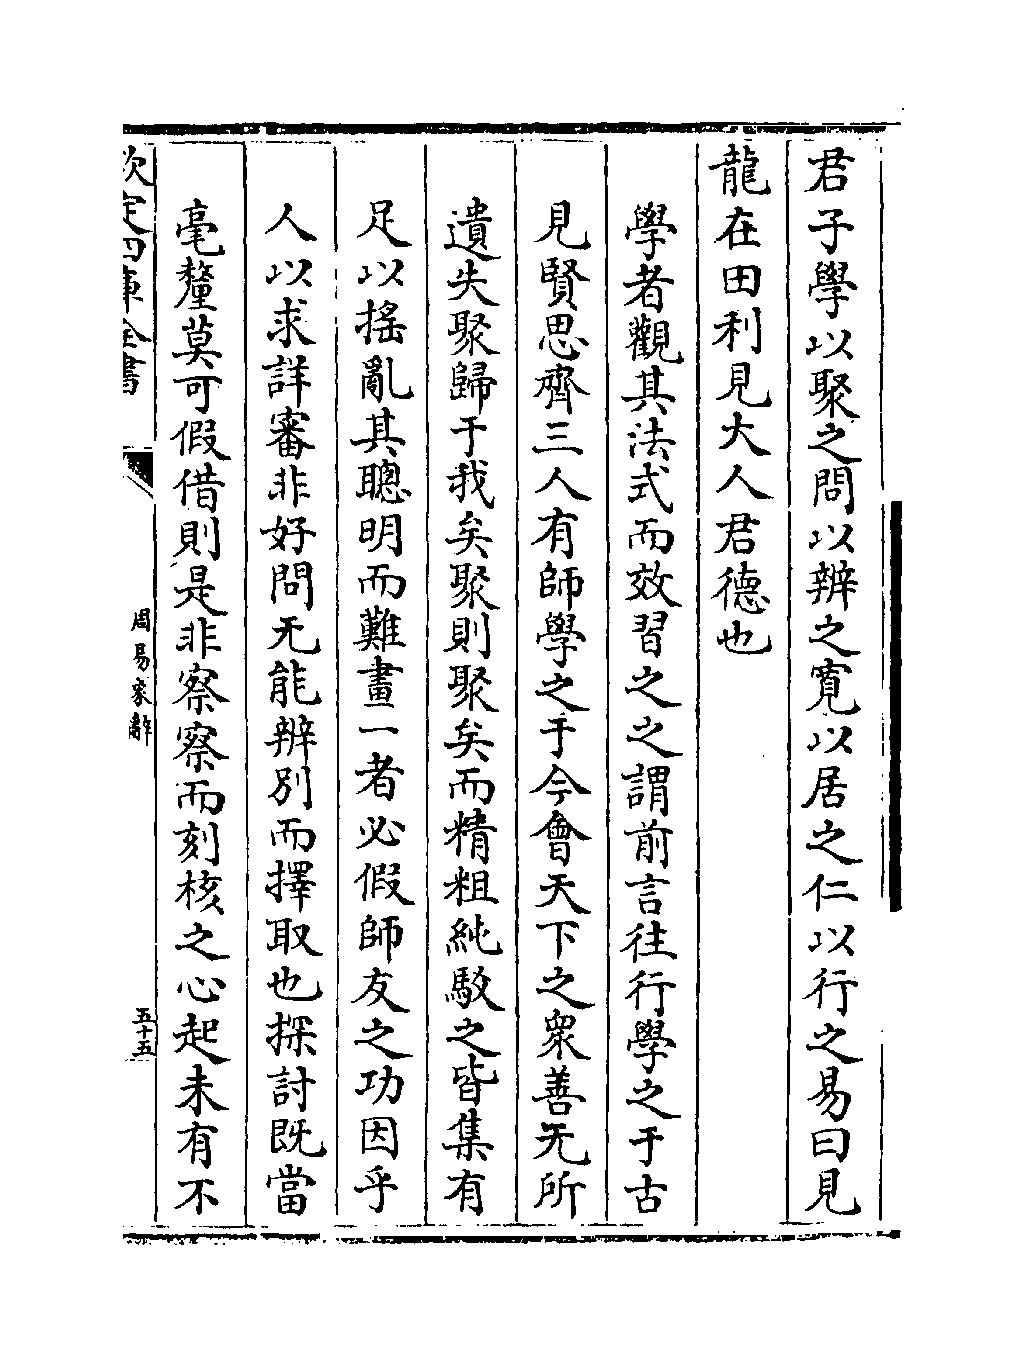 君子學以聚之問以辨之寛以居之仁以行之易曰見
龍在田利見大人君德也
學者觀其法式而效習之之謂前言往行學之于古
見賢思齊三人有師學之于今會天下之衆善无所
遺失聚歸于我矣聚則聚矣而精粗純駁之皆集有
足以搖亂其聰明而難畫一者必假師友之功因乎
人以求詳審非好問无能辨别而擇取也探討既當
毫釐莫可假借則是非察察而刻核之心起未有不
欽定四庫全書
周易象辭
五十五